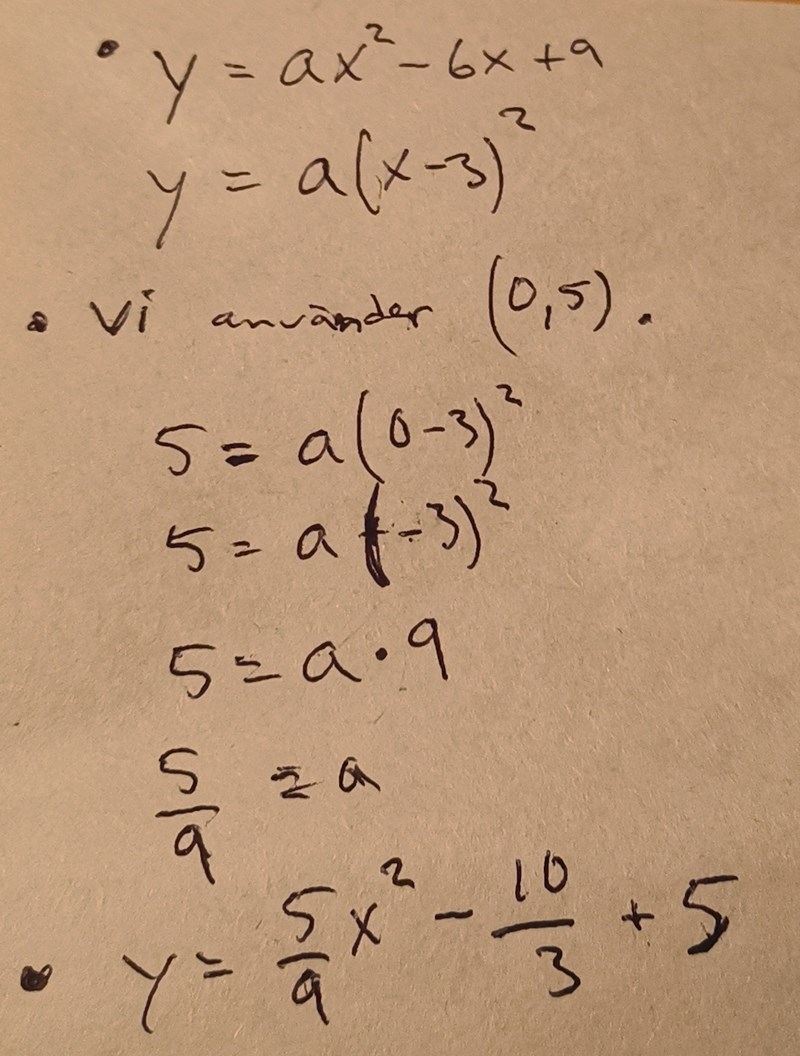 • y = ax² - 6x + 9
y = a(x-3)²
• Vi använder (0,5).
5 = a(0-3)²
5 = a(-3)²
5 = a·9
5/9 = a
• y = 5/9 x² - 10/3 + 5